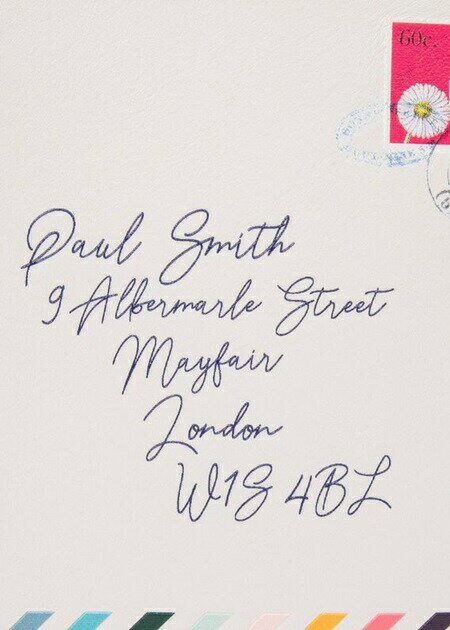 60c.
Paul Smith
9 Albermarle Street
Mayfair
London
W1S 4BL